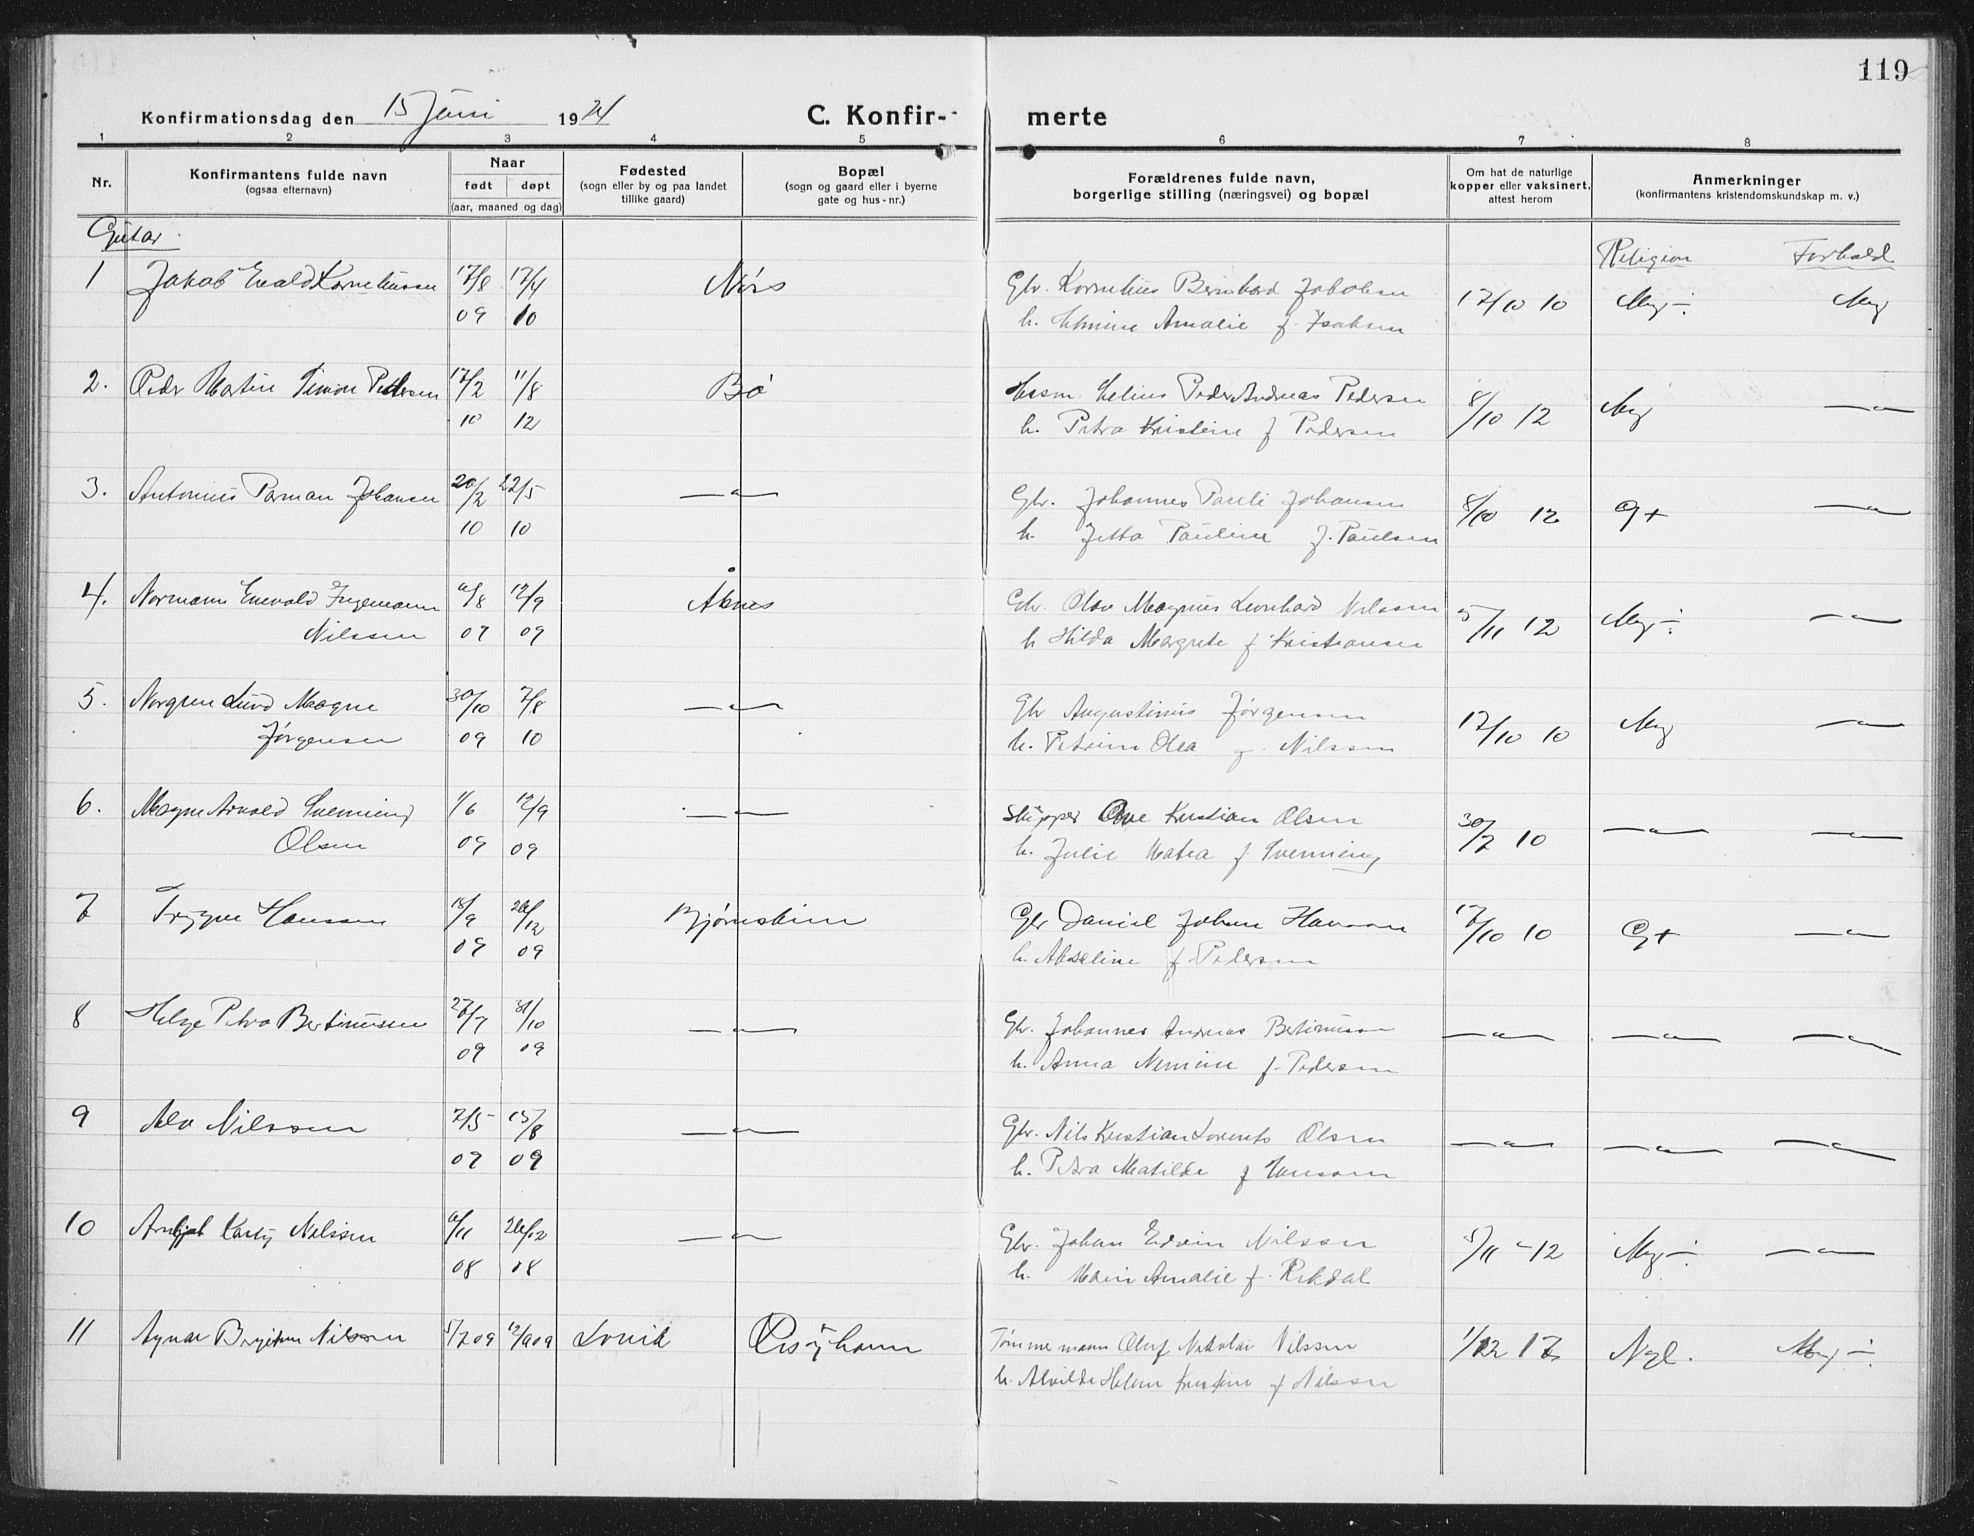 119
Konfirmationsdag den 15 Juni 1924
C. Konfir-
merte
1 2 3 4 5 6 7 8
Nr.
Konfirmantens fulde navn
(ogsaa efternavn)
Naar
født døpt
(aar, maaned og dag)
Fødested
(sogn eller by og paa landet
tillike gaard)
Bopæl
(sogn og gaard eller i byerne
gate og hus-nr.)
Forældrenes fulde navn,
borgerlige stilling (næringsvei) og bopæl
Om hat de naturlige
kopper eller vaksinert,
attest herom
Anmerkninger
(konfirmantens kristendomskundskap m. v.)
Gutar.
Religion Forhold
1 Jakob Evald Korneliussen 17/8 17/4 Gbr. Kornelius Bernhard Jakobsen 17/10 10 Mg÷ Mg
09 10 h. Amalie f. Isaksen
2. Peder Martin Simon Pedersen 17/2 11/8 Bø Peder Andreas Pedersen 8/10 12 Mg —"—
10 12 h. Petra Kristine f Pedersen
3. Antonius Parman Johansen 20/2 22/5 —"— Gbr. Johannes Pareli Johansen 8/10 12 G+ —"—
10 10 h. Jetta Pauline f. Paulsen
4. Normann Enevald Ingemann 6/8 12/9 Åknes Gbr. Olav Magnus Leonhard Nilssen 5/11 12 Mg÷ —"—
Nilssen 09 09 h Hilda Margrete f Kristiansen
5. Lund Magne 30/10 7/8 —"— Gbr Augustinus Jørgensen 17/10 10 Mg —"—
Jørgensen 09 10 h. Petrine Olea f. Nilssen
6. Magne Arnold Svenning 1/6 12/9 —"— Skipper Ove Kristian Olsen 30/7 10 —"— —"—
Olsen 09 09 h. Julie f. Svenning
7 Trygve Hanssen 18/9 26/12 Bjørnskinn Gbr Daniel Johan Hanssen 17/10 10 G+ —"—
09 09 h. f Pedersen
8 Helge Petra Bertinussen 27/7 31/10 —"— Gbr. Johannes Andreas Bertinussen —"— —"— —"—
09 09 h. Anna f. Pedersen
9 Alv Nilssen 7/5 15/8 —"— Gbr. Nils Kristian Lorents Olsen —"— —"— —"—
09 09 h. Petra Matilde f Hanssen
10 Nilssen 6/11 26/12 —"— Gbr. Johan Edvin Nilssen 5/11 -12 Mg÷ —"—
08 08 h. Amalie f.
11 Nilssen 5/7 09 12/9 09 Lovik Risøyhamn Tømmermann Oluf Nikolai Nilssen 1/12 17 Ngl. Mg÷
h. Alvilde Helene Kristine f Nilssen